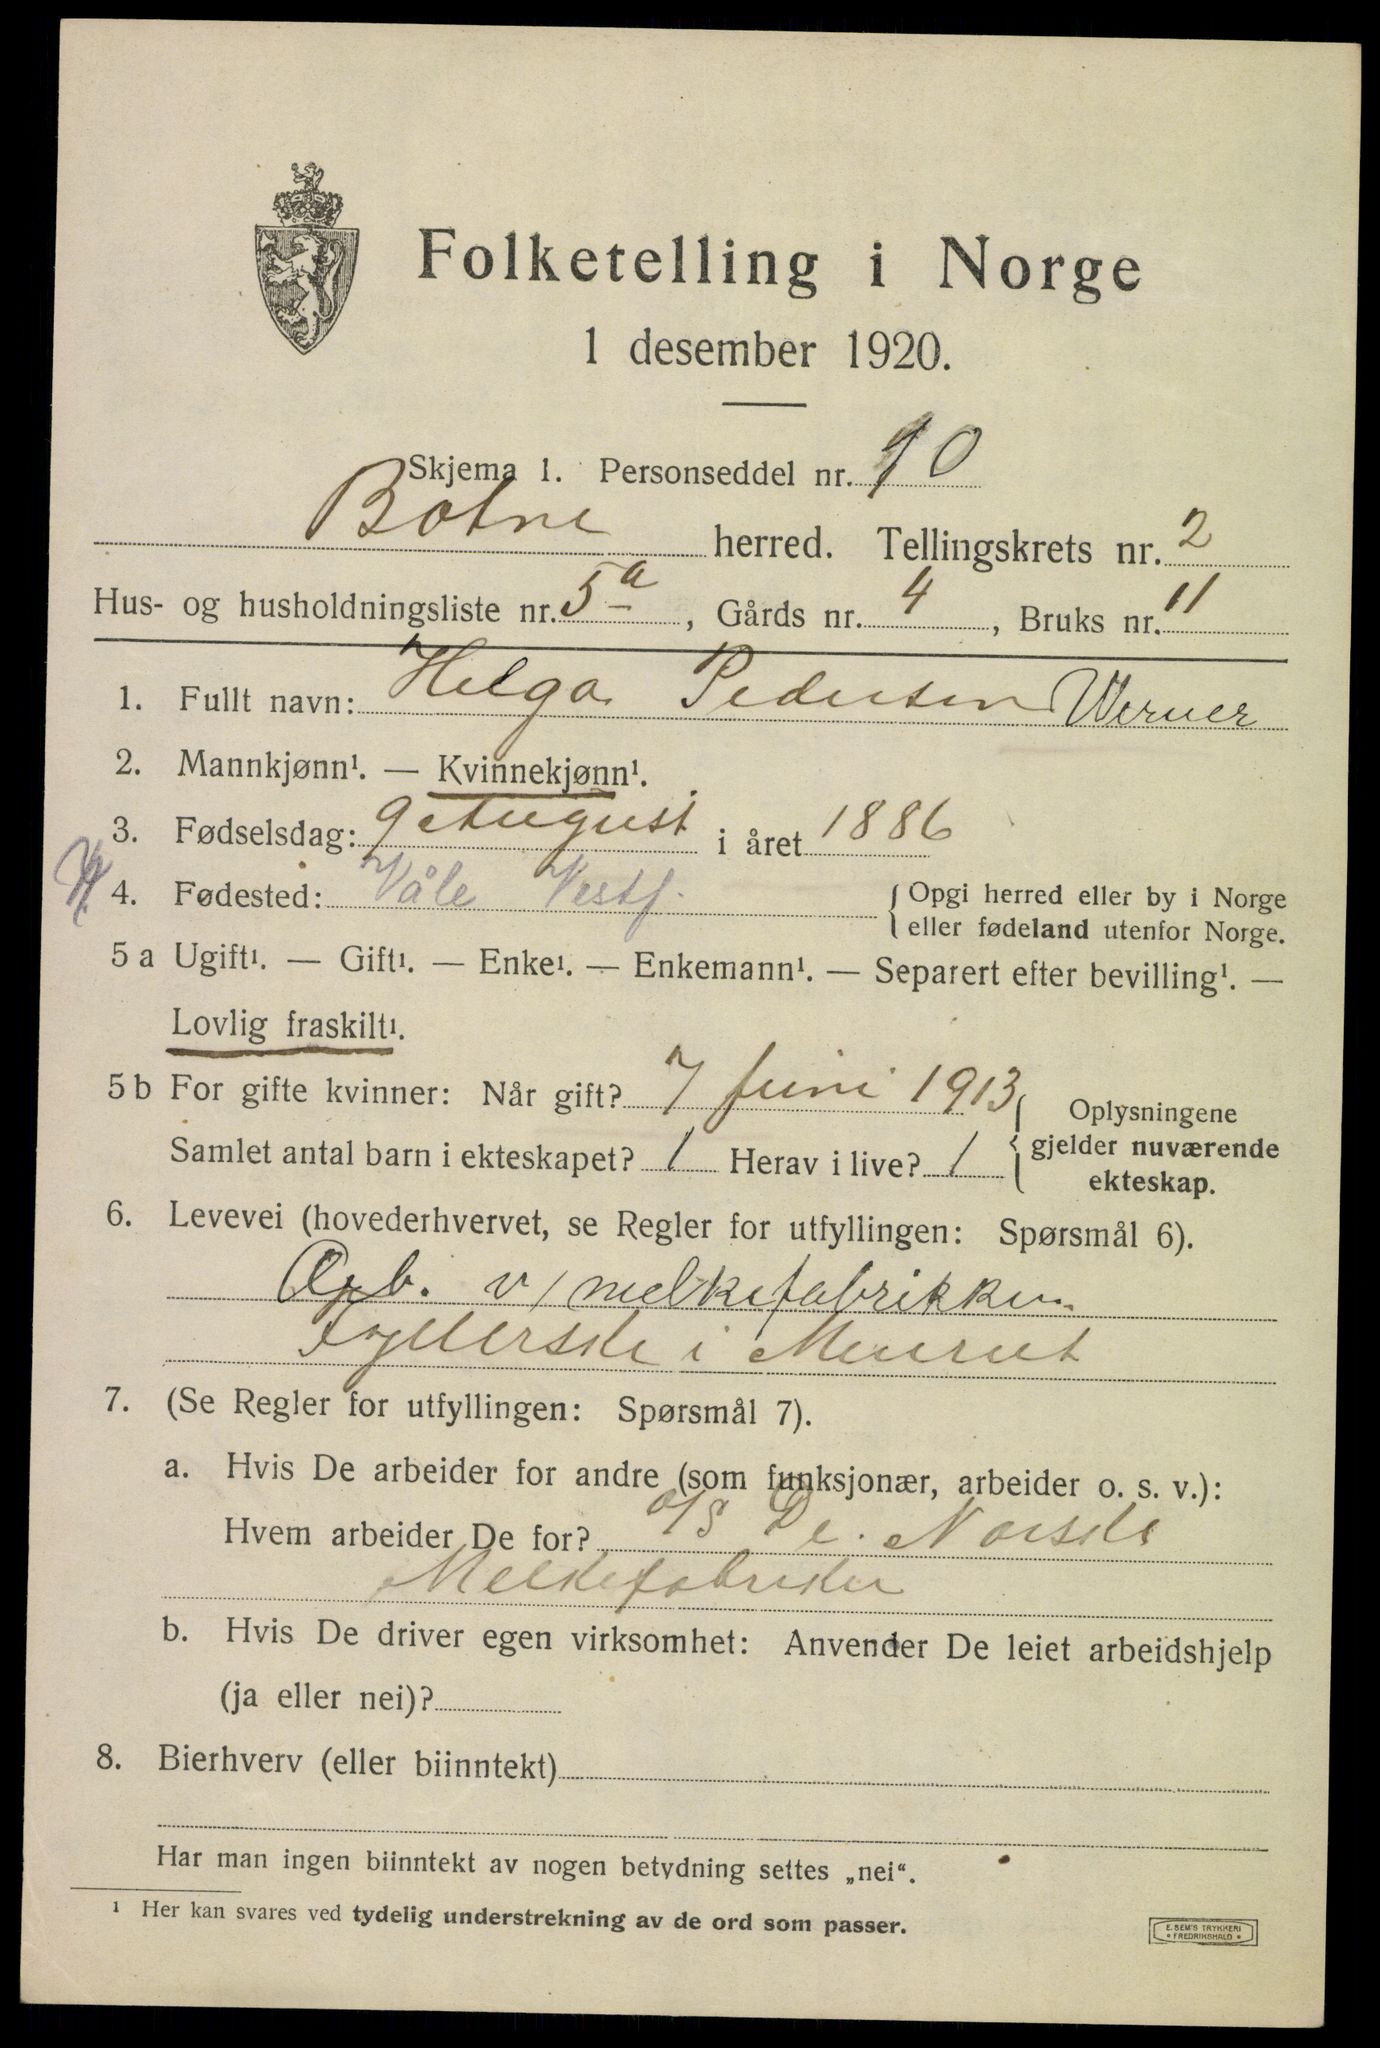 Folketelling i Norge
1 desember 1920.
Skjema 1. Personseddel nr. 10
Botne herred. Tellingskrets nr. 2
Hus- og husholdningsliste nr. 5a, Gårds nr. 4, Bruks nr. 11
1. Fullt navn: Helga Pedersen Werner
2. Mannkjønn¹. — Kvinnekjønn¹.
3. Fødselsdag: 9 August i året 1886
4. Fødested: Våle Vestf. { Opgi herred eller by i Norge
eller fødeland utenfor Norge.
5 a Ugift¹. — Gift¹. — Enke¹. — Enkemann¹. — Separert efter bevilling¹. —
Lovlig fraskilt¹.
5 b For gifte kvinner: Når gift? 7 Juni 1913 { Oplysningene
Samlet antal barn i ekteskapet? 1 Herav i live? 1 gjelder nuværende
ekteskap.
6. Levevei (hovederhvervet, se Regler for utfyllingen: Spørsmål 6).
Arb. v/ melkefabrikken
i
7. (Se Regler for utfyllingen: Spørsmål 7).
a. Hvis De arbeider for andre (som funksjonær, arbeider o. s. v.):
Hvem arbeider De for? a/s De. Norske
Melkefabriker
b. Hvis De driver egen virksomhet: Anvender De leiet arbeidshjelp
(ja eller nei)?
8. Bierhverv (eller biinntekt)
Har man ingen biinntekt av nogen betydning settes „nei".
¹ Her kan svares ved tydelig understrekning av de ord som passer.
E. SEM'S TRYKKERI
• FREDRIKSHALD •